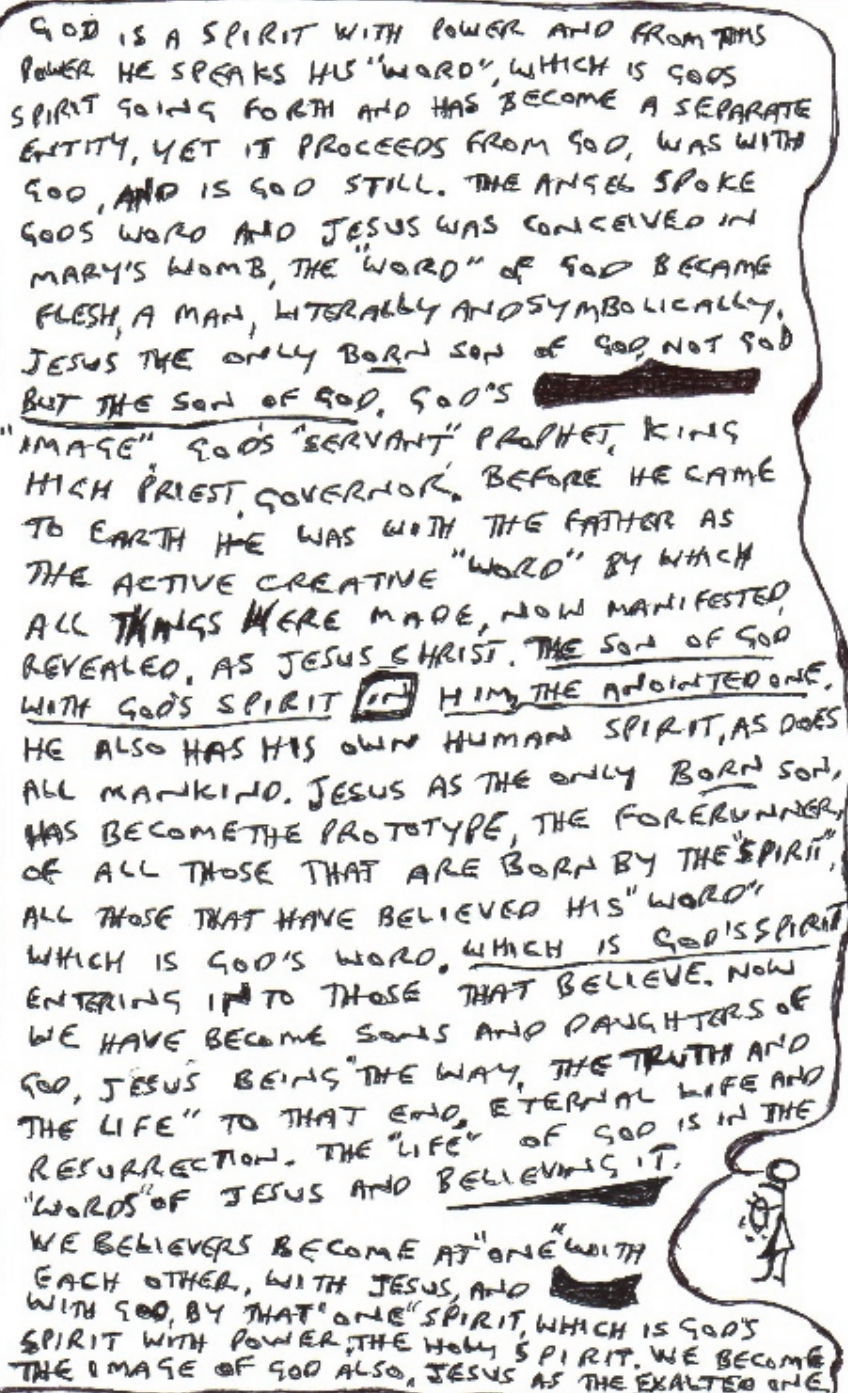 GOD IS A SPIRIT WITH POWER AND FROM THIS
POWER HE SPEAKS HIS "WORD", WHICH IS GODS
SPIRIT GOING FORTH AND HAS BECOME A SEPARATE
ENTITY, YET IT PROCEEDS FROM GOD, WAS WITH
GOD, AND IS GOD STILL. THE ANGEL SPOKE
GODS WORD AND JESUS WAS CONCEIVED IN
MARY'S WOMB, THE "WORD" OF GOD BECAME
FLESH, A MAN, LITERALLY AND SYMBOLICALLY.
JESUS THE ONLY BORN SON OF GOD, NOT GOD
BUT THE SON OF GOD. GOD'S
"IMAGE", GOD'S "SERVANT" PROPHET, KING
HIGH PRIEST, GOVERNOR. BEFORE HE CAME
TO EARTH HE WAS WITH THE FATHER AS
THE ACTIVE CREATIVE "WORD" BY WHICH
ALL THINGS WERE MADE, NOW MANIFESTED,
REVEALED, AS JESUS CHRIST. THE SON OF GOD
WITH GOD'S SPIRIT IN HIM, THE ANOINTED ONE.
HE ALSO HAS HIS OWN HUMAN SPIRIT, AS DOES
ALL MANKIND. JESUS AS THE ONLY BORN SON,
HAS BECOME THE PROTOTYPE, THE FORERUNNER,
OF ALL THOSE THAT ARE BORN BY THE "SPIRIT",
ALL THOSE THAT HAVE BELIEVED HIS "WORD"
WHICH IS GOD'S WORD. WHICH IS GOD'S SPIRIT
ENTERING INTO THOSE THAT BELIEVE. NOW
WE HAVE BECOME SONS AND DAUGHTERS OF
GOD, JESUS BEING "THE WAY, THE TRUTH AND
THE LIFE" TO THAT END, ETERNAL LIFE AND
RESURRECTION. THE "LIFE" OF GOD IS IN THE
"WORDS" OF JESUS AND BELIEVING IT.
WE BELIEVERS BECOME AT "ONE" WITH
EACH OTHER, WITH JESUS, AND
WITH GOD, BY THAT "ONE" SPIRIT, WHICH IS GOD'S
SPIRIT WITH POWER, THE HOLY SPIRIT. WE BECOME
THE IMAGE OF GOD ALSO, JESUS AS THE EXALTED ONE.